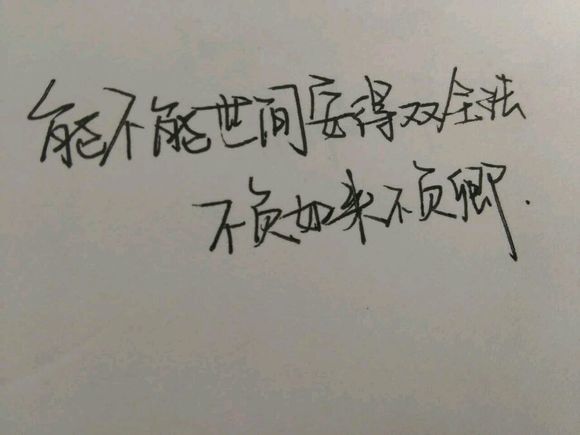 能不能世间安得双全法
不负如来不负卿.